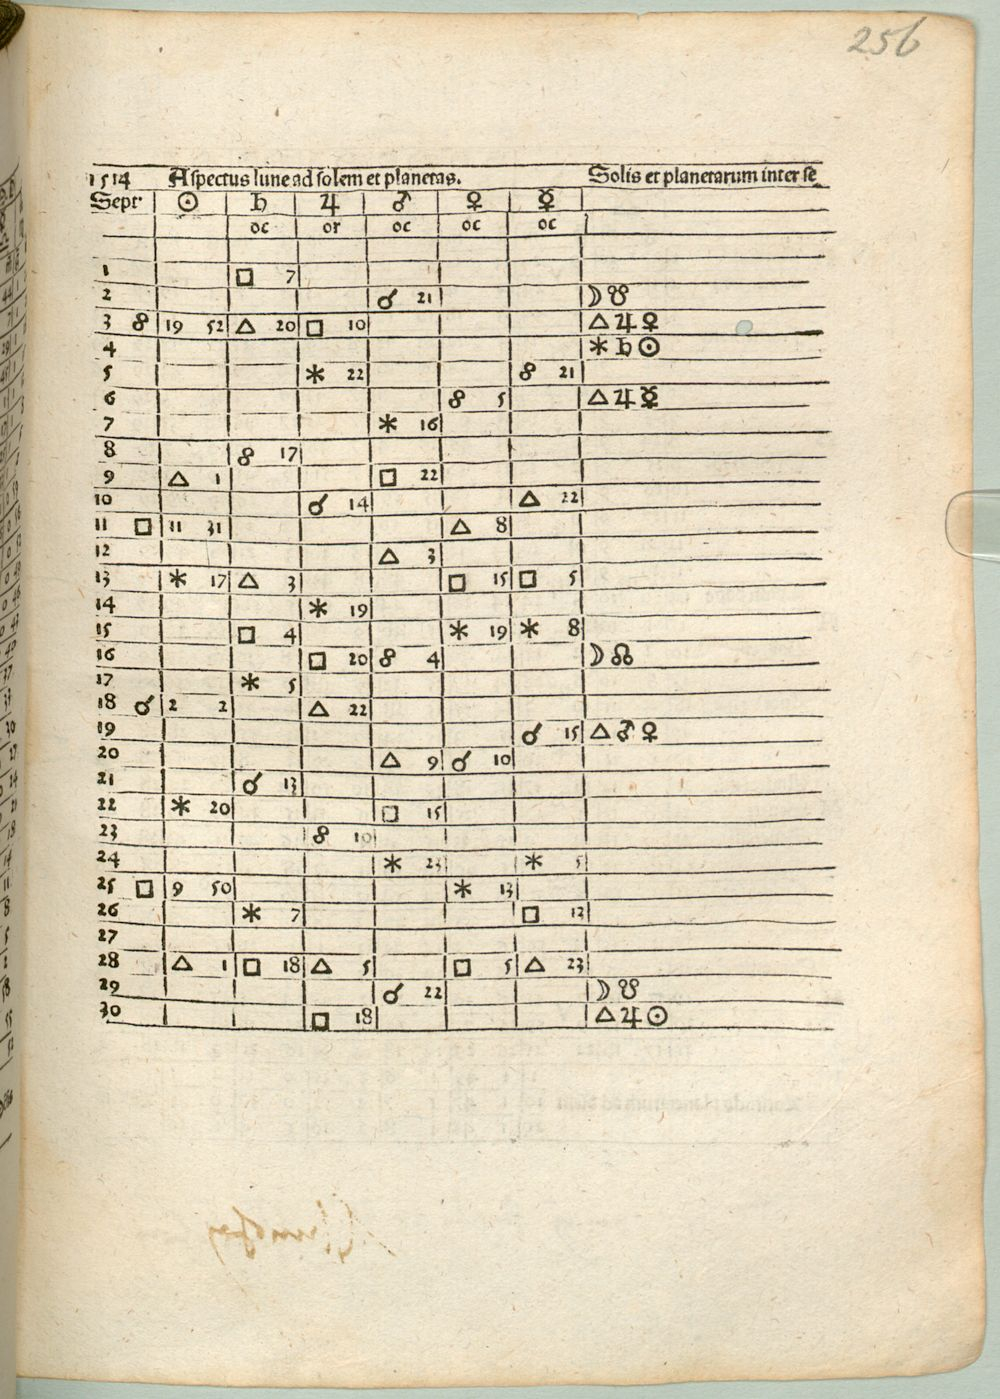 256
1514 Aspectus lune ad solem et planetas. Solis et planetarum inter se
Sept ☉ ♄ ♃ ♂ ♀ ☿
oc or oc oc oc
1 □ 7
2 ☌ 21 ☽ ☋
3 ☍ 19 52 △ 20 □ 10 △ ♃ ♀
4 ⚹ ♄ ☉
5 ⚹ 22 ☍ 21
6 ☍ 5 △ ♃ ☿
7 ⚹ 16
8 ☍ 17
9 △ 1 □ 22
10 ☌ 14 △ 22
11 □ 11 31 △ 8
12 △ 3
13 ⚹ 17 △ 3 □ 15 □ 5
14 ⚹ 19
15 □ 4 ⚹ 19 ⚹ 8
16 □ 20 ☍ 4 ☽ ☊
17 ⚹ 5
18 ☌ 2 2 △ 22
19 ☌ 15 △ ♂ ♀
20 △ 9 ☌ 10
21 ☌ 13
22 ⚹ 20 □ 15
23 ☍ 10
24 ⚹ 23 ⚹ 5
25 □ 9 50 ⚹ 13
26 ⚹ 7 □ 12
27
28 △ 1 □ 18 △ 5 □ 5 △ 23
29 ☌ 22 ☽ ☋
30 □ 18 △ ♃ ☉